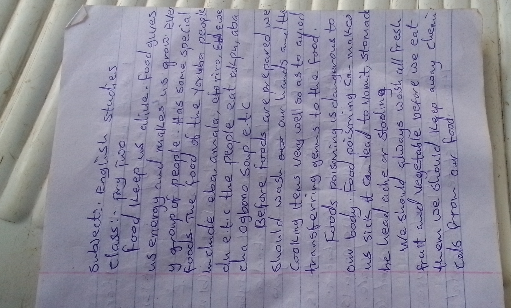 Subject:- English Studies
Class:- Pry Two
Food keep us alive. Food gives
us energy and makes us grow. Ever
y group of people. Has some special
foods. The food of the Yoruba people
include eba, amala,
du e.t.c the people eat akpu, aba
cha ogbono soup e.t.c
Before foods are prepared we
should wash our hands and the
cooking items very well so as to avoid
transferring germs to the food.
Foods poisoning is dangerous to
our body. Food poisoning can makes
us sick it can lead to vomit, stomach
he head ache or stooling
We should always wash all fresh
fruit and vegetable before we eat
them we should keep away chemi
cals from our food